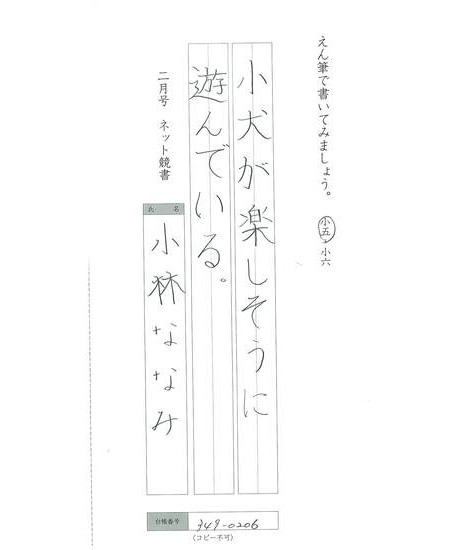 えん筆で書いてみましょう。
小五・小六
小犬が楽しそうに
遊んでいる。
二月号 ネット競書
氏名
小林ななみ
台帳番号
349-0206
(コピー不可)